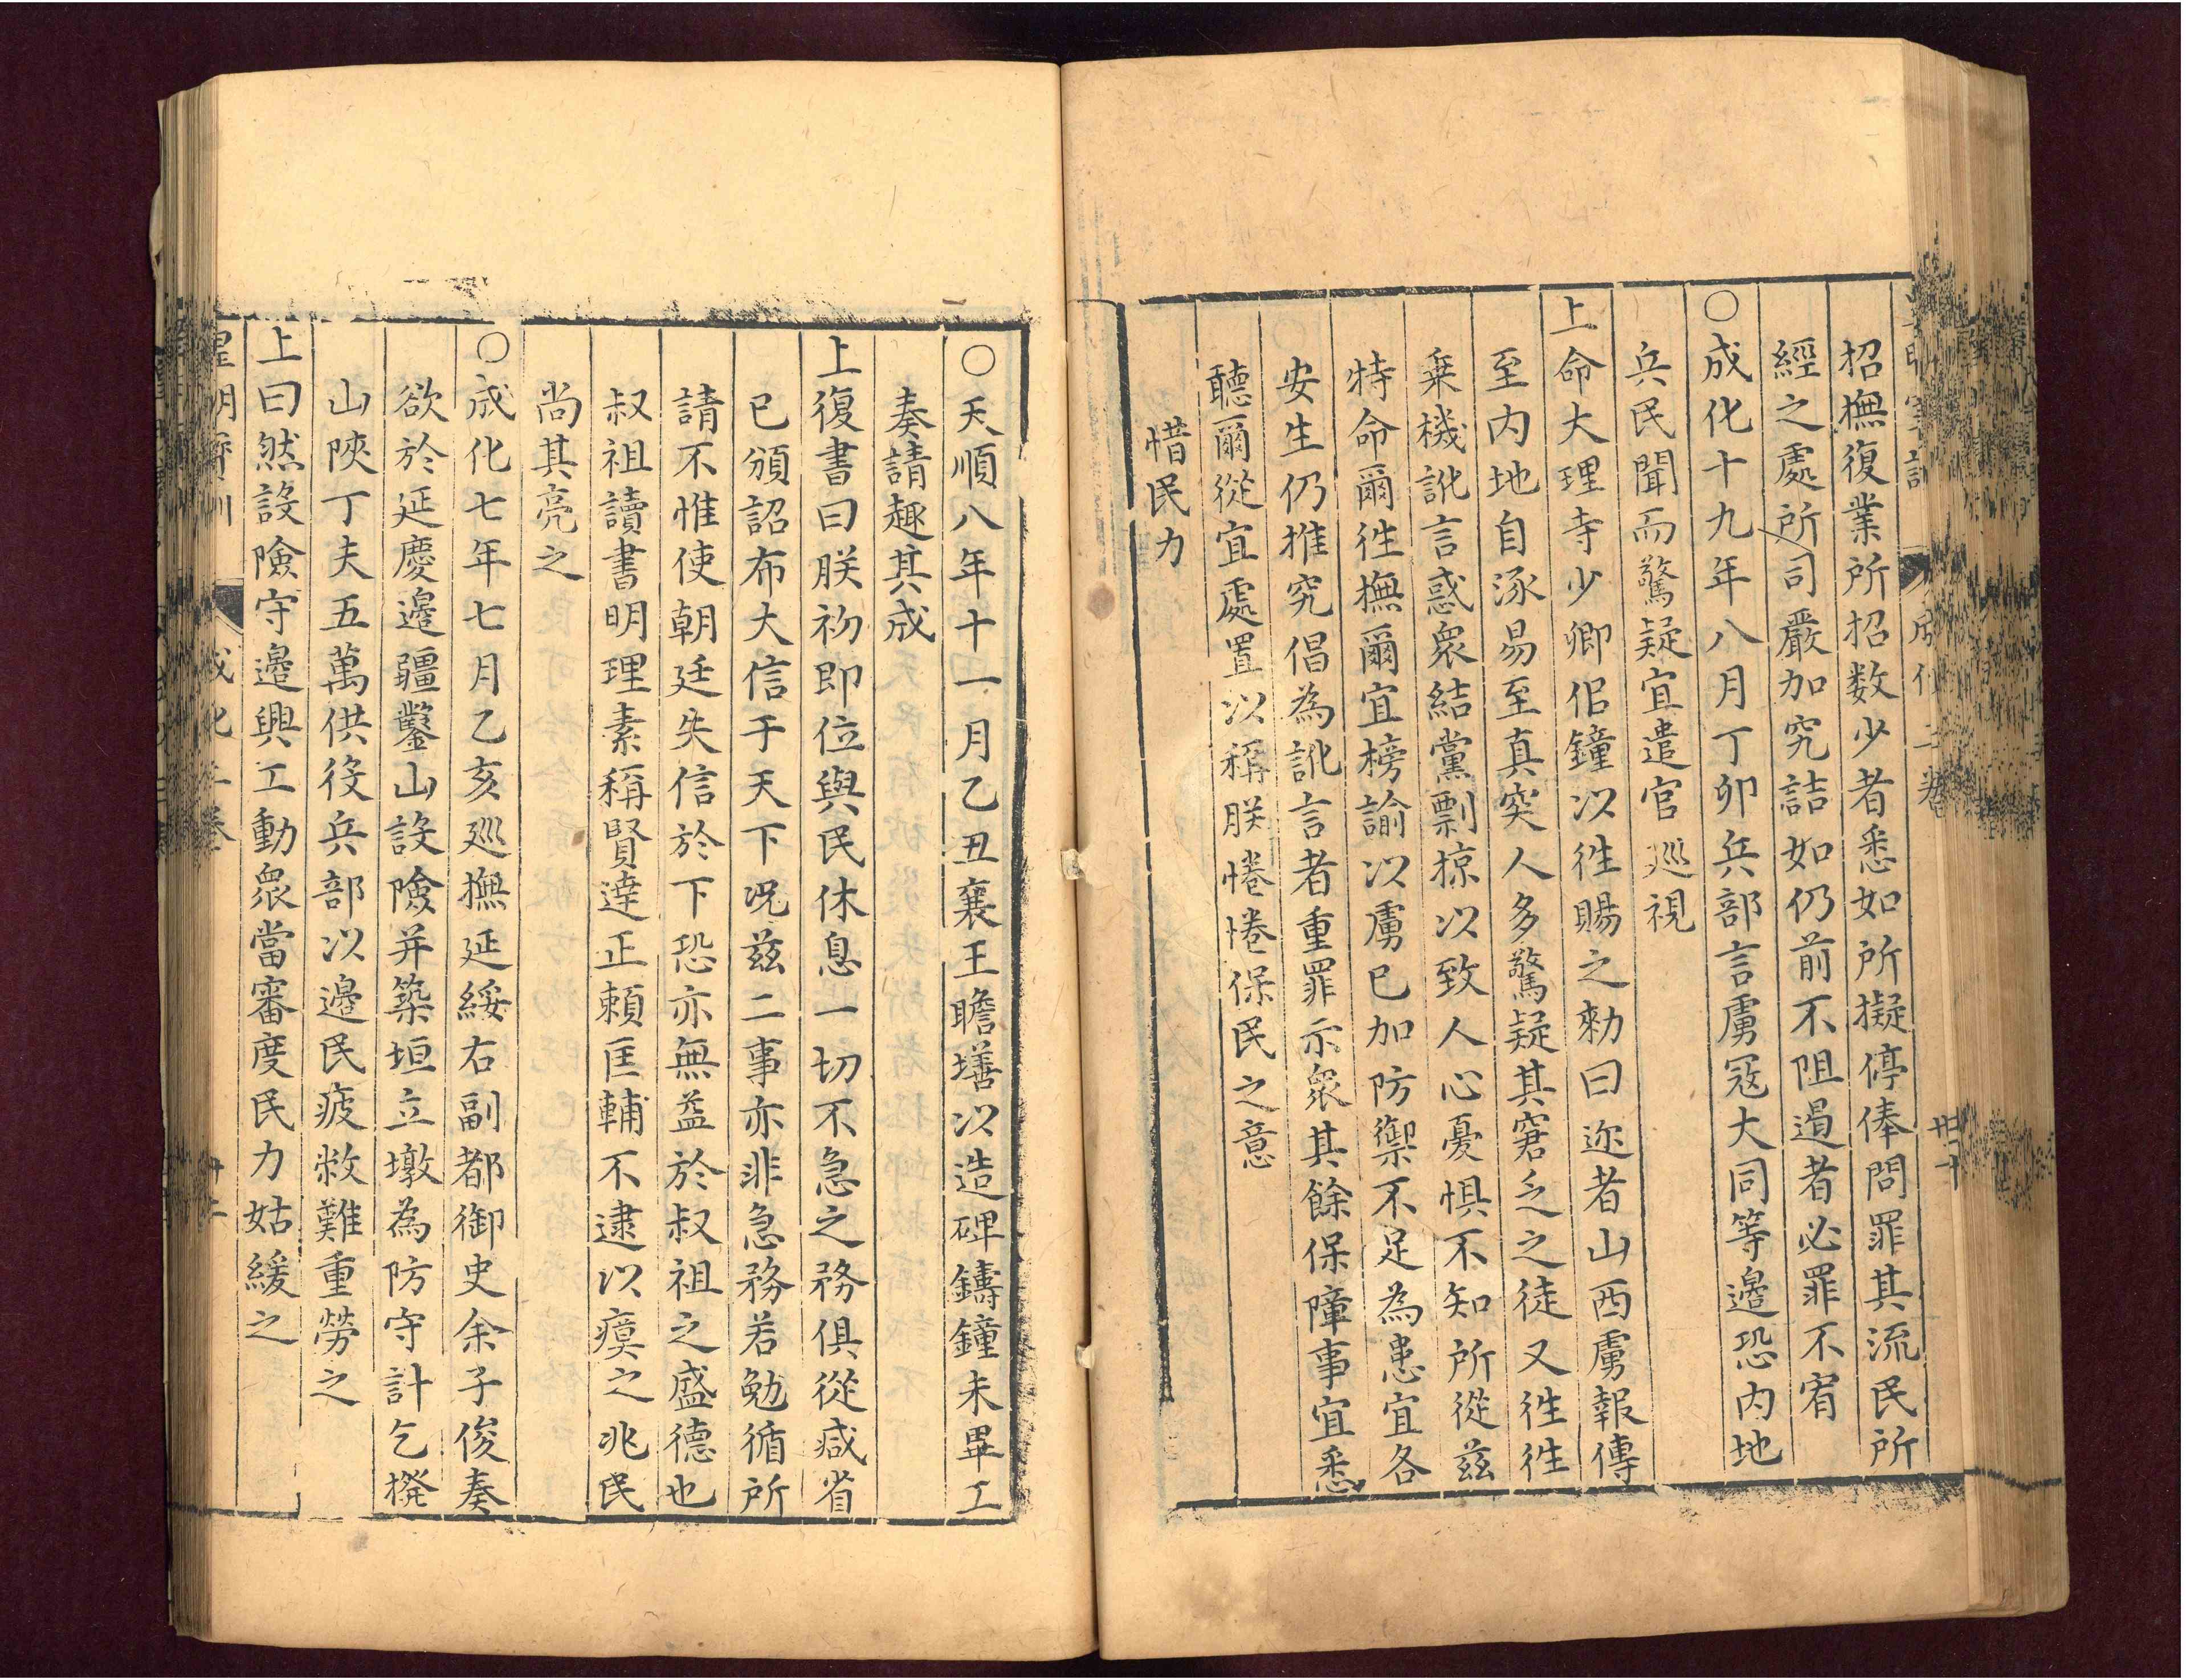 招撫復業所招数少者悉如所擬停俸問罪其流民所
經之處所司嚴加究詰如仍前不阻遏者必罪不宥
○成化十九年八月丁卯兵部言虜冦大同等邉恐内地
兵民聞而驚疑宜遣官廵視
上命大理寺少卿佀鐘以徃賜之勑曰邇者山西虜報傳
至内地自涿易至真㝎人多驚疑其窘乏之徒又徃徃
乗機訛言惑衆結黨剽掠以致人心憂惧不知所從兹
特命爾徃撫爾宜榜諭以虜已加防禦不足為患宜各
安生仍推究倡為訛言者重罪示衆其餘保障事宜悉
聽爾從宜處置以稱朕惓惓保民之意
惜民力
○天順八年十一月乙丑襄王瞻墡以造碑鑄鐘未畢工
奏請趣其成
上復書曰朕初即位與民休息一切不急之務俱從减省
已頒詔布大信于天下况兹二事亦非急務若勉循所
請不惟使朝廷失信於下恐亦無益於叔祖之盛德也
叔祖讀書明理素稱賢逹正頼匡輔不逮以瘼之兆民
尚其亮之
○成化七年七月乙亥廵撫延綏右副都御史余子俊奏
欲於延慶邉疆鑿山設險并築垣立墩為防守計乞撥
山陜丁夫五萬供役兵部以邉民疲敝難重勞之
上曰然設險守邉興工動衆當審度民力姑緩之
皇明寳訓 成化二卷